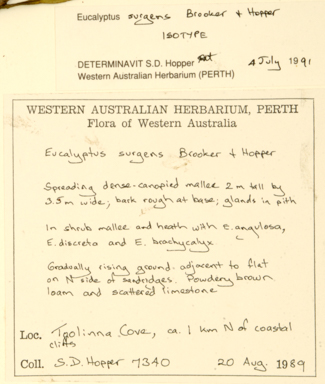 Eucalyptus surgens Brooker & Hopper
ISOTYPE
DETERMINAVIT S.D. Hopper 4 July 1991
Western Australian Herbarium (PERTH)
WESTERN AUSTRALIAN HERBARIUM, PERTH
Flora of Western Australia
Eucalyptus surgens Brooker & Hopper
Spreading dense-canopied mallee 2 m tall by
3.5 m wide; bark rough at base; glands in pith
In shrub mallee and heath with E. angulosa,
E. discreta and E. brachycalyx
Gradually rising ground adjacent to flat
on N side of sandridges. Powdery brown
loam and scattered limestone
Loc. Toolinna Cove, ca. 1 km N of coastal
cliffs
Coll. S.D. Hopper 7340 20 Aug. 1989